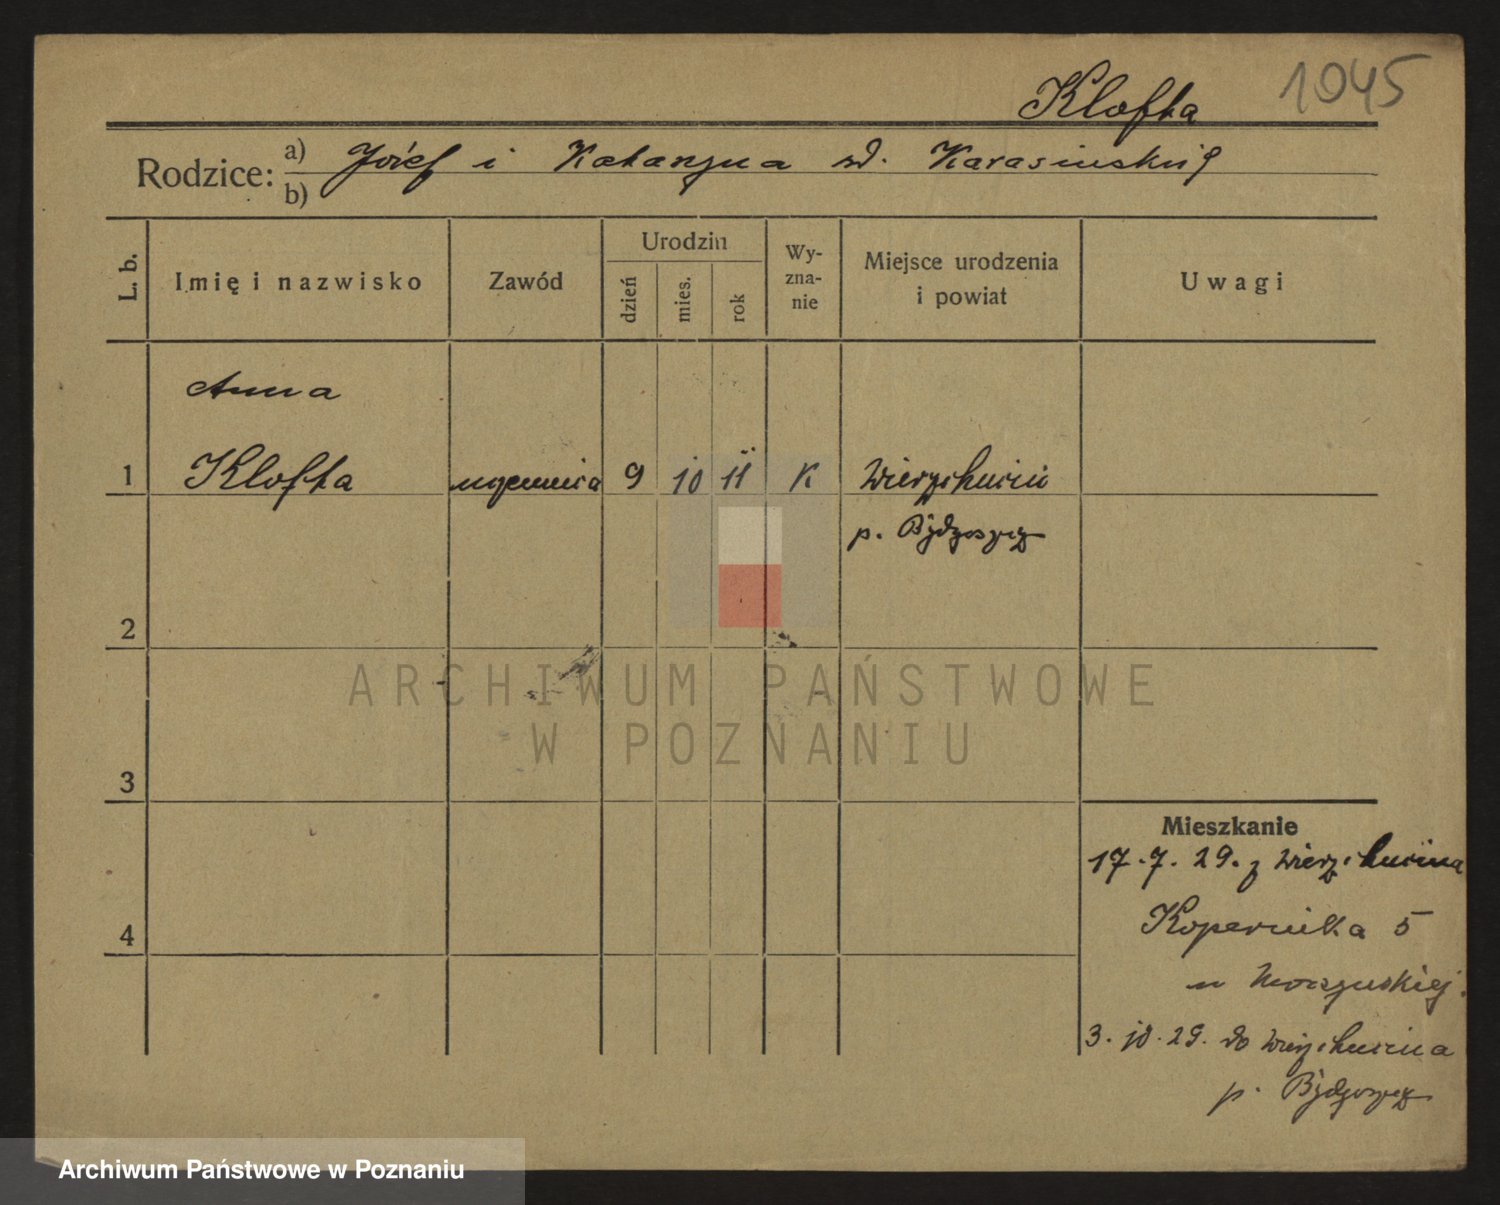 1045
Klofka
Rodzice: a) Józef i Katarzyna
b)
L. b.
Imię i nazwisko
Zawód
Urodzin
dzień
mies.
rok
Wy-
zna-
nie
Miejsce urodzenia
i powiat
Uwagi
Anna
1 Klofka uczennica 9 10 11 K Wierzchucin
p. Bydgoszcz
2
ARCHIWUM PAŃSTWOWE
W POZNANIU
3
Mieszkanie
17.7.29. z Wierzchucina
4
Kopernika 5
u
3.10.29. do Wierzchucina
p. Bydgoszcz
Archiwum Państwowe w Poznaniu